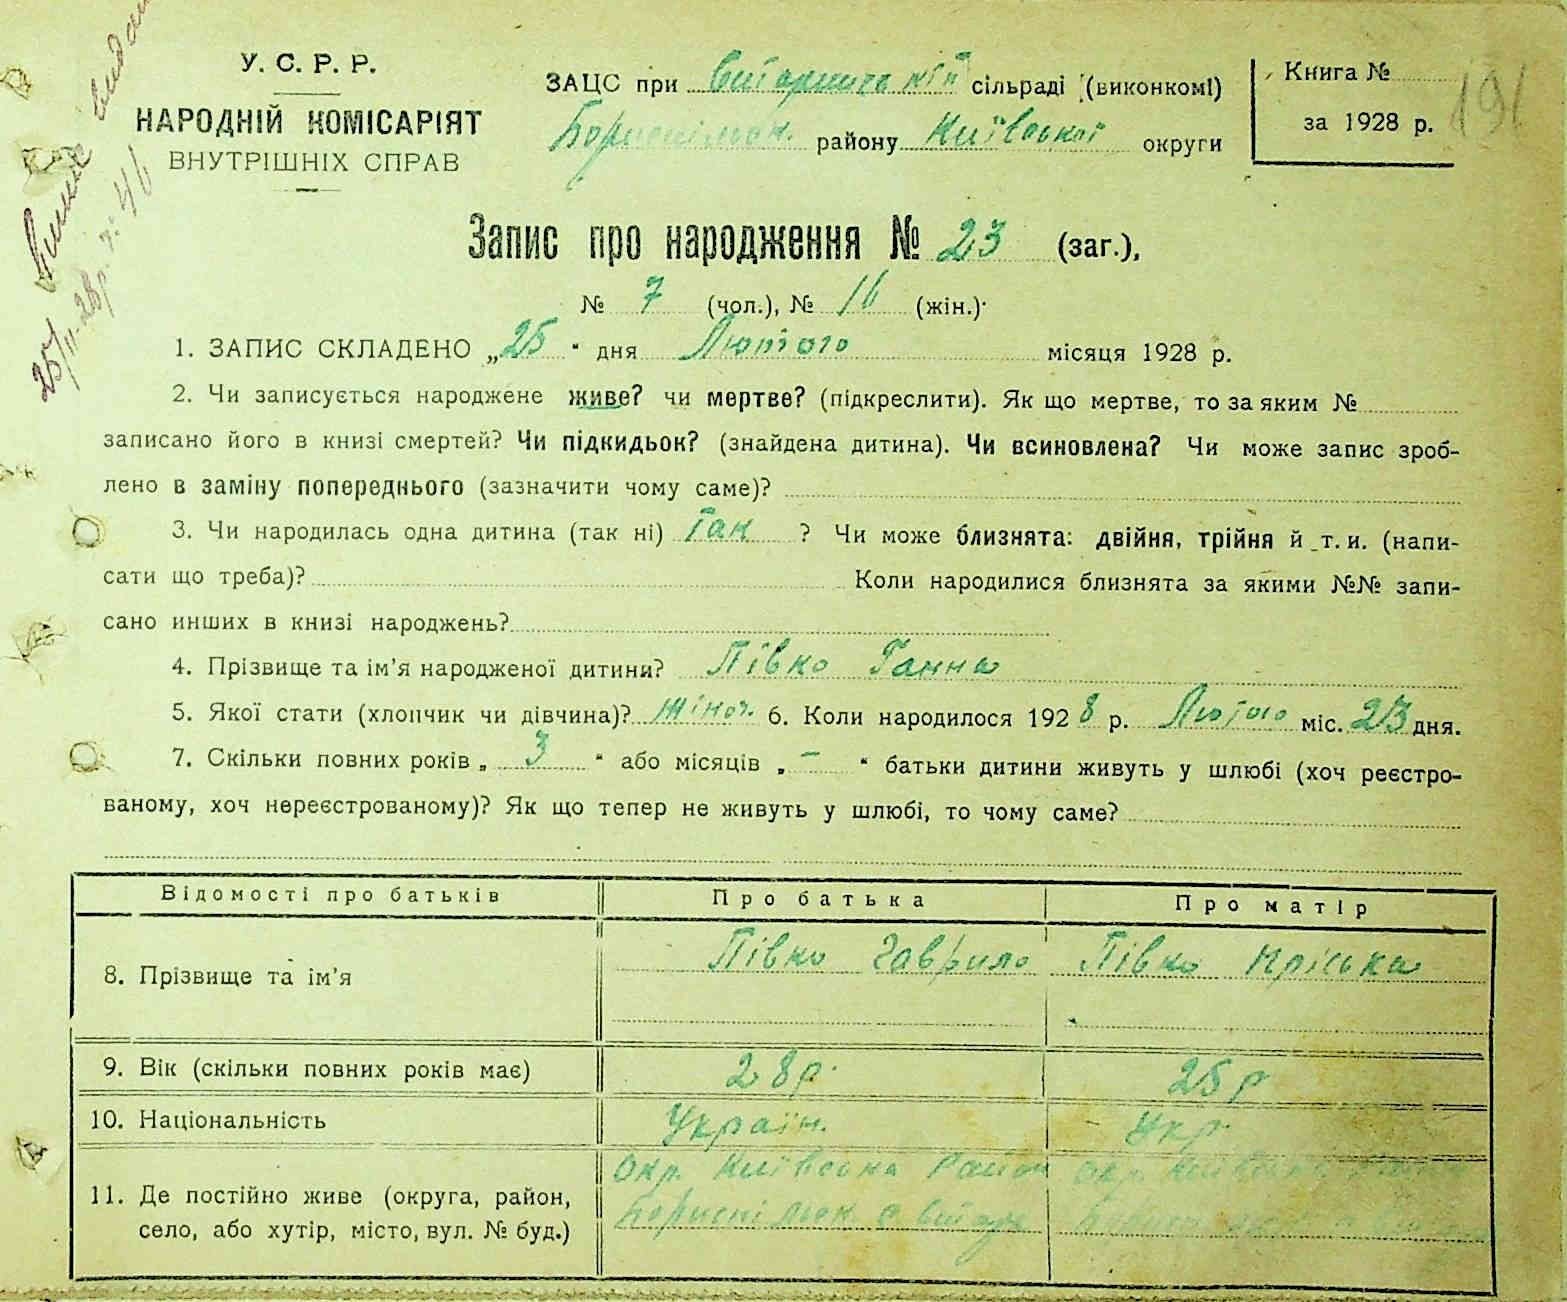 У. С. Р. Р.
НАРОДНІЙ КОМІСАРІЯТ
ВНУТРІШНІХ СПРАВ
ЗАЦС при сільраді (виконкомі)
Бориспільськ. району Київської округи
Книга №
за 1928 р.
191
Запис про народження № 23 (заг.),
№ 7 (чол.), № 16 (жін.).
1. ЗАПИС СКЛАДЕНО „25“ дня Лютого місяця 1928 р.
2. Чи записується народжене живе? чи мертве? (підкреслити). Як що мертве, то за яким №
записано його в книзі смертей? Чи підкидьок? (знайдена дитина). Чи всиновлена? Чи може запис зроб-
лено в заміну попереднього (зазначити чому саме)?
3. Чи народилась одна дитина (так ні) Так ? Чи може близнята: двійня, трійня й т. и. (напи-
сати що треба)? Коли народилися близнята за якими №№ запи-
сано инших в книзі народжень?
4. Прізвище та ім’я народженої дитини? Півко Ганна
5. Якої стати (хлопчик чи дівчина)? жіноч. 6. Коли народилося 1928 р. Лютого міс. 23 дня.
7. Скільки повних років „ 3 “ або місяців „ – “ батьки дитини живуть у шлюбі (хоч реєстро-
ваному, хоч нереєстрованому)? Як що тепер не живуть у шлюбі, то чому саме?
Відомості про батьків Про батька Про матір
8. Прізвище та ім’я Півко Гаврило Півко Пріська
9. Вік (скільки повних років має) 28 р. 25 р
10. Національність Україн. Укр.
11. Де постійно живе (округа, район, Окр. Київська Район Окр. Київська
село, або хутір, місто, вул. № буд.) Бориспільськ. с